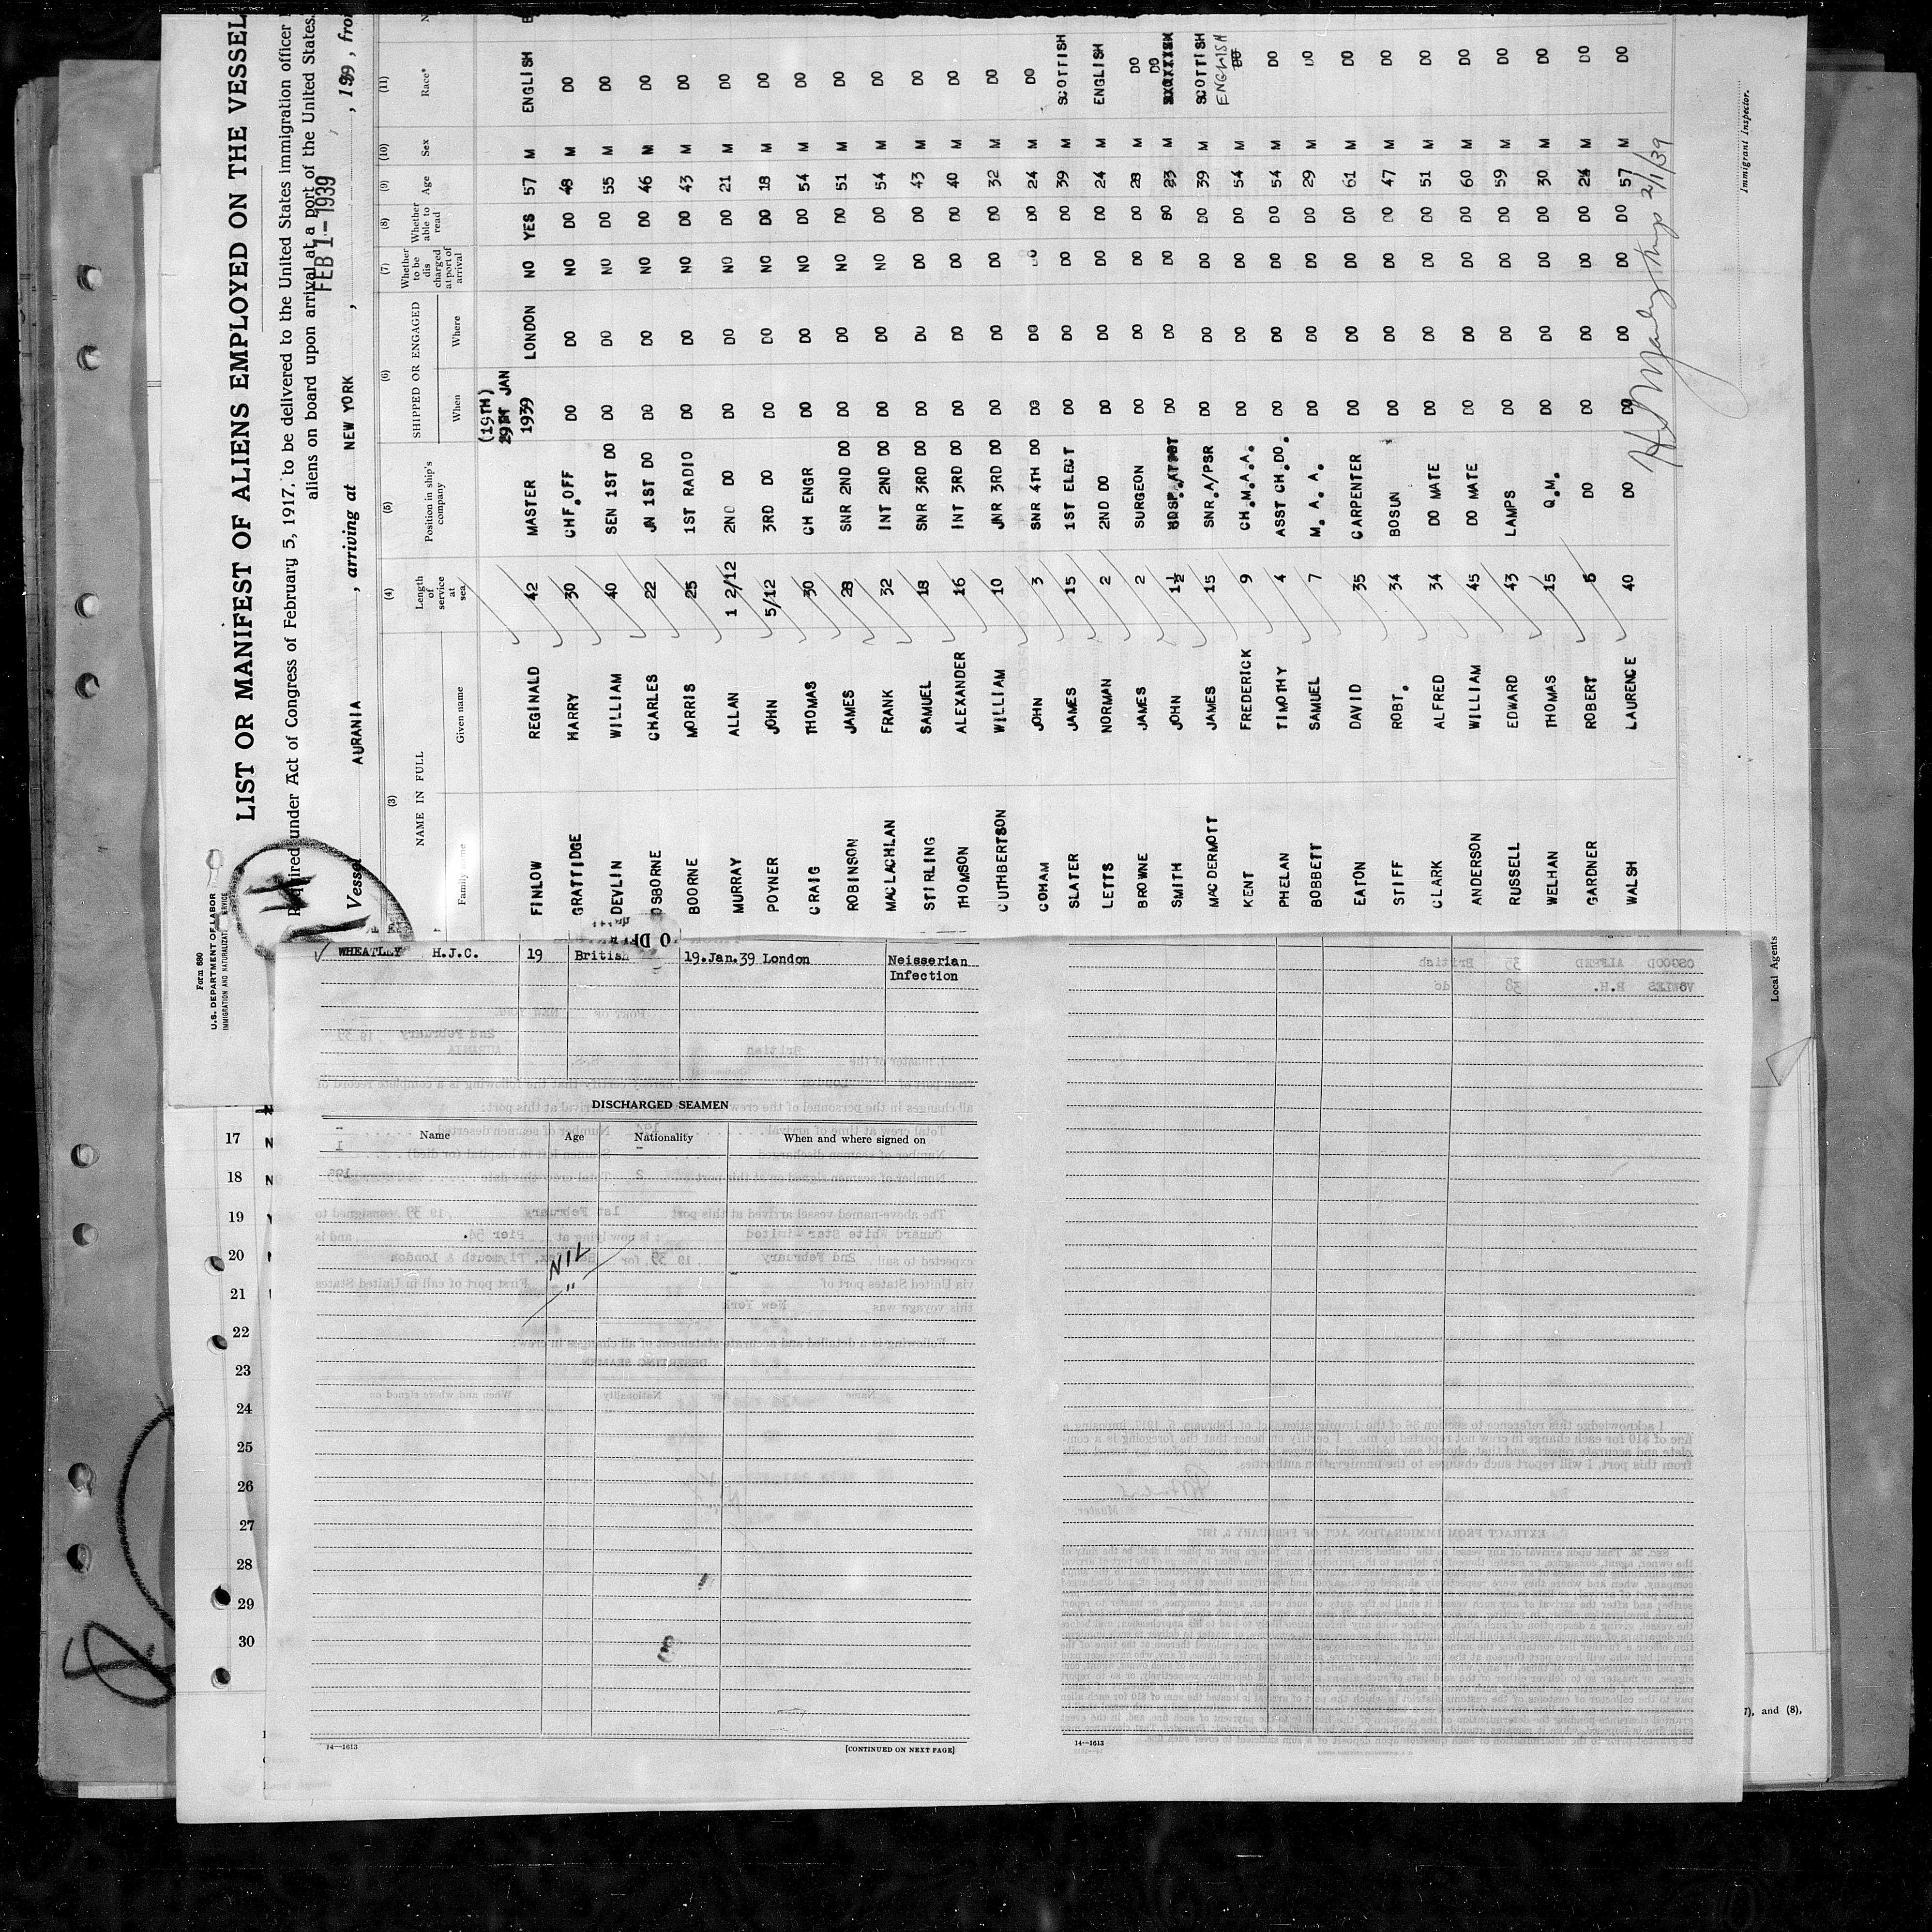 Form 680
U.S. DEPARTMENT OF LABOR
IMMIGRATION AND NATURALIZATION SERVICE
LIST OR MANIFEST OF ALIENS EMPLOYED ON THE VESSEL
Required under Act of Congress of February 5, 1917, to be delivered to the United States immigration officer
aliens on board upon arrival at a port of the United States.
FEB 1- 1939
Vessel AURANIA , arriving at NEW YORK , , 1939, from
(3) (4) (5) (6) (7) (8) (9) (10) (11)
NAME IN FULL Length of service at sea Position in ship's company SHIPPED OR ENGAGED Whether to be dis charged at port of arrival Whether able to read Age Sex Race*
Family name Given name When Where
(19TH)
JAN
FINLOW REGINALD 42 MASTER 1939 LONDON NO YES 57 M ENGLISH
GRATTIDGE HARRY 30 CHF.OFF DO DO NO DO 48 M DO
DEVLIN WILLIAM 40 SEN 1ST DO DO DO NO DO 55 M DO
OSBORNE CHARLES 22 JN 1ST DO DO DO NO DO 46 M DO
BOORNE MORRIS 25 1ST RADIO DO DO NO DO 43 M DO
MURRAY ALLAN 1 2/12 2ND DO DO DO NO DO 21 M DO
POYNER JOHN 5/12 3RD DO DO DO NO DO 18 M DO
CRAIG THOMAS 30 CH ENGR DO DO NO DO 54 M DO
ROBINSON JAMES 28 SNR 2ND DO DO DO NO DO 51 M DO
MACLACHLAN FRANK 32 INT 2ND DO DO DO NO DO 54 M DO
STIRLING SAMUEL 18 SNR 3RD DO DO DO DO DO 43 M DO
THOMSON ALEXANDER 16 INT 3RD DO DO DO DO DO 40 M DO
CUTHBERTSON WILLIAM 10 JNR 3RD DO DO DO DO DO 32 M DO
COHAM JOHN 3 SNR 4TH DO DO DO DO DO 24 M DO
SLATER JAMES 15 1ST ELECT DO DO DO DO 39 M SCOTTISH
LETTS NORMAN 2 2ND DO DO DO DO DO 24 M ENGLISH
BROWNE JAMES 2 SURGEON DO DO DO DO 28 M DO
SMITH JOHN 1½ HOSP.ATTDT DO DO DO DO 23 M DO
MACDERMOTT JAMES 15 SNR.A/PSR DO DO DO DO 39 M SCOTTISH
KENT FREDERICK 9 CH.M.A.A. DO DO DO DO 54 M ENGLISH
PHELAN TIMOTHY 4 ASST CH.DO. DO DO DO DO 54 M DO
BOBBETT SAMUEL 7 M. A. A. DO DO DO DO 29 M DO
EATON DAVID 35 CARPENTER DO DO DO DO 61 M DO
STIFF ROBT. 34 BOSUN DO DO DO DO 47 M DO
CLARK ALFRED 34 DO MATE DO DO DO DO 51 M DO
ANDERSON WILLIAM 45 DO MATE DO DO DO DO 60 M DO
RUSSELL EDWARD 43 LAMPS DO DO DO DO 59 M DO
WELHAN THOMAS 15 Q.M. DO DO DO DO 30 M DO
GARDNER ROBERT 5 DO DO DO DO DO 24 M DO
WALSH LAURENCE 40 DO DO DO DO DO 57 M DO
2/1/39
Immigrant Inspector.
Local Agents
WHEATLEY H.J.C. 19 British 19.Jan.39 London Neisserian
Infection
DISCHARGED SEAMEN
Name Age Nationality When and where signed on
NIL
"
14—1613 [CONTINUED ON NEXT PAGE]
14—1613
17
18
19
20
21
22
23
24
25
26
27
28
29
30
, and (8),